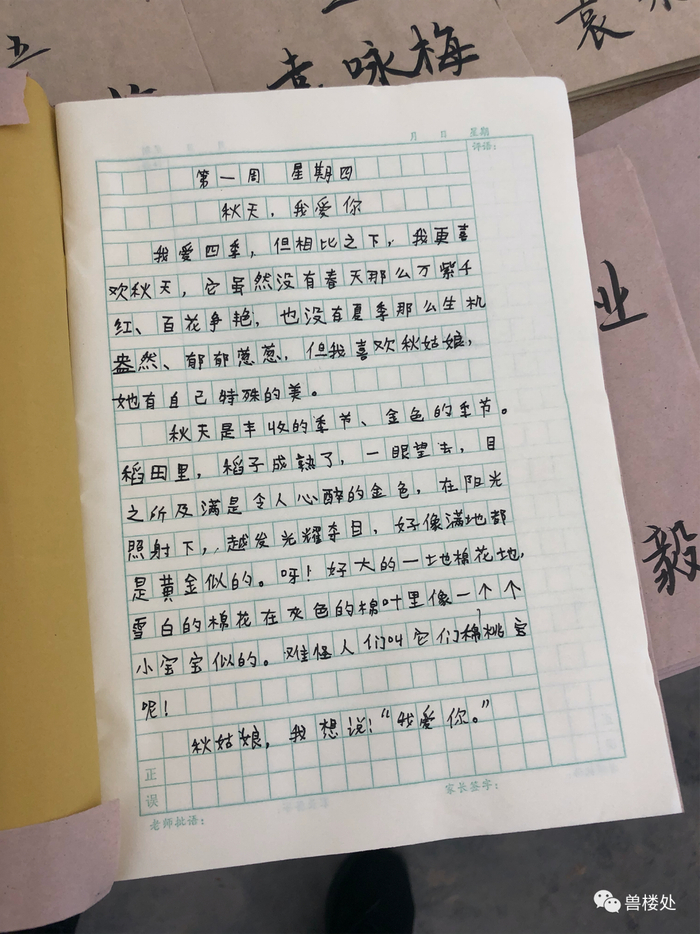 五
袁咏梅
袁
业
毅
月 日 星期
评语：
第一周 星期四
秋天，我爱你
我爱四季，但相比之下，我更喜
欢秋天，它虽然没有春天那么万紫千
红、百花争艳，也没有夏季那么生机
盎然、郁郁葱葱，但我喜欢秋姑娘，
她有自己特殊的美。
秋天是丰收的季节、金色的季节。
稻田里，稻子成熟了，一眼望去，目
之所及满是令人心醉的金色，在阳光
照射下，越发光耀夺目，好像满地都
是黄金似的。呀！好大的一土也棉花地，
雪白的棉花在灰色的棉叶里像一个个
小宝宝似的。难怪人们叫它们棉桃宝
呢！
秋姑娘，我想说：“我爱你。”
正
误
家长签字：
老师批语：
兽楼处